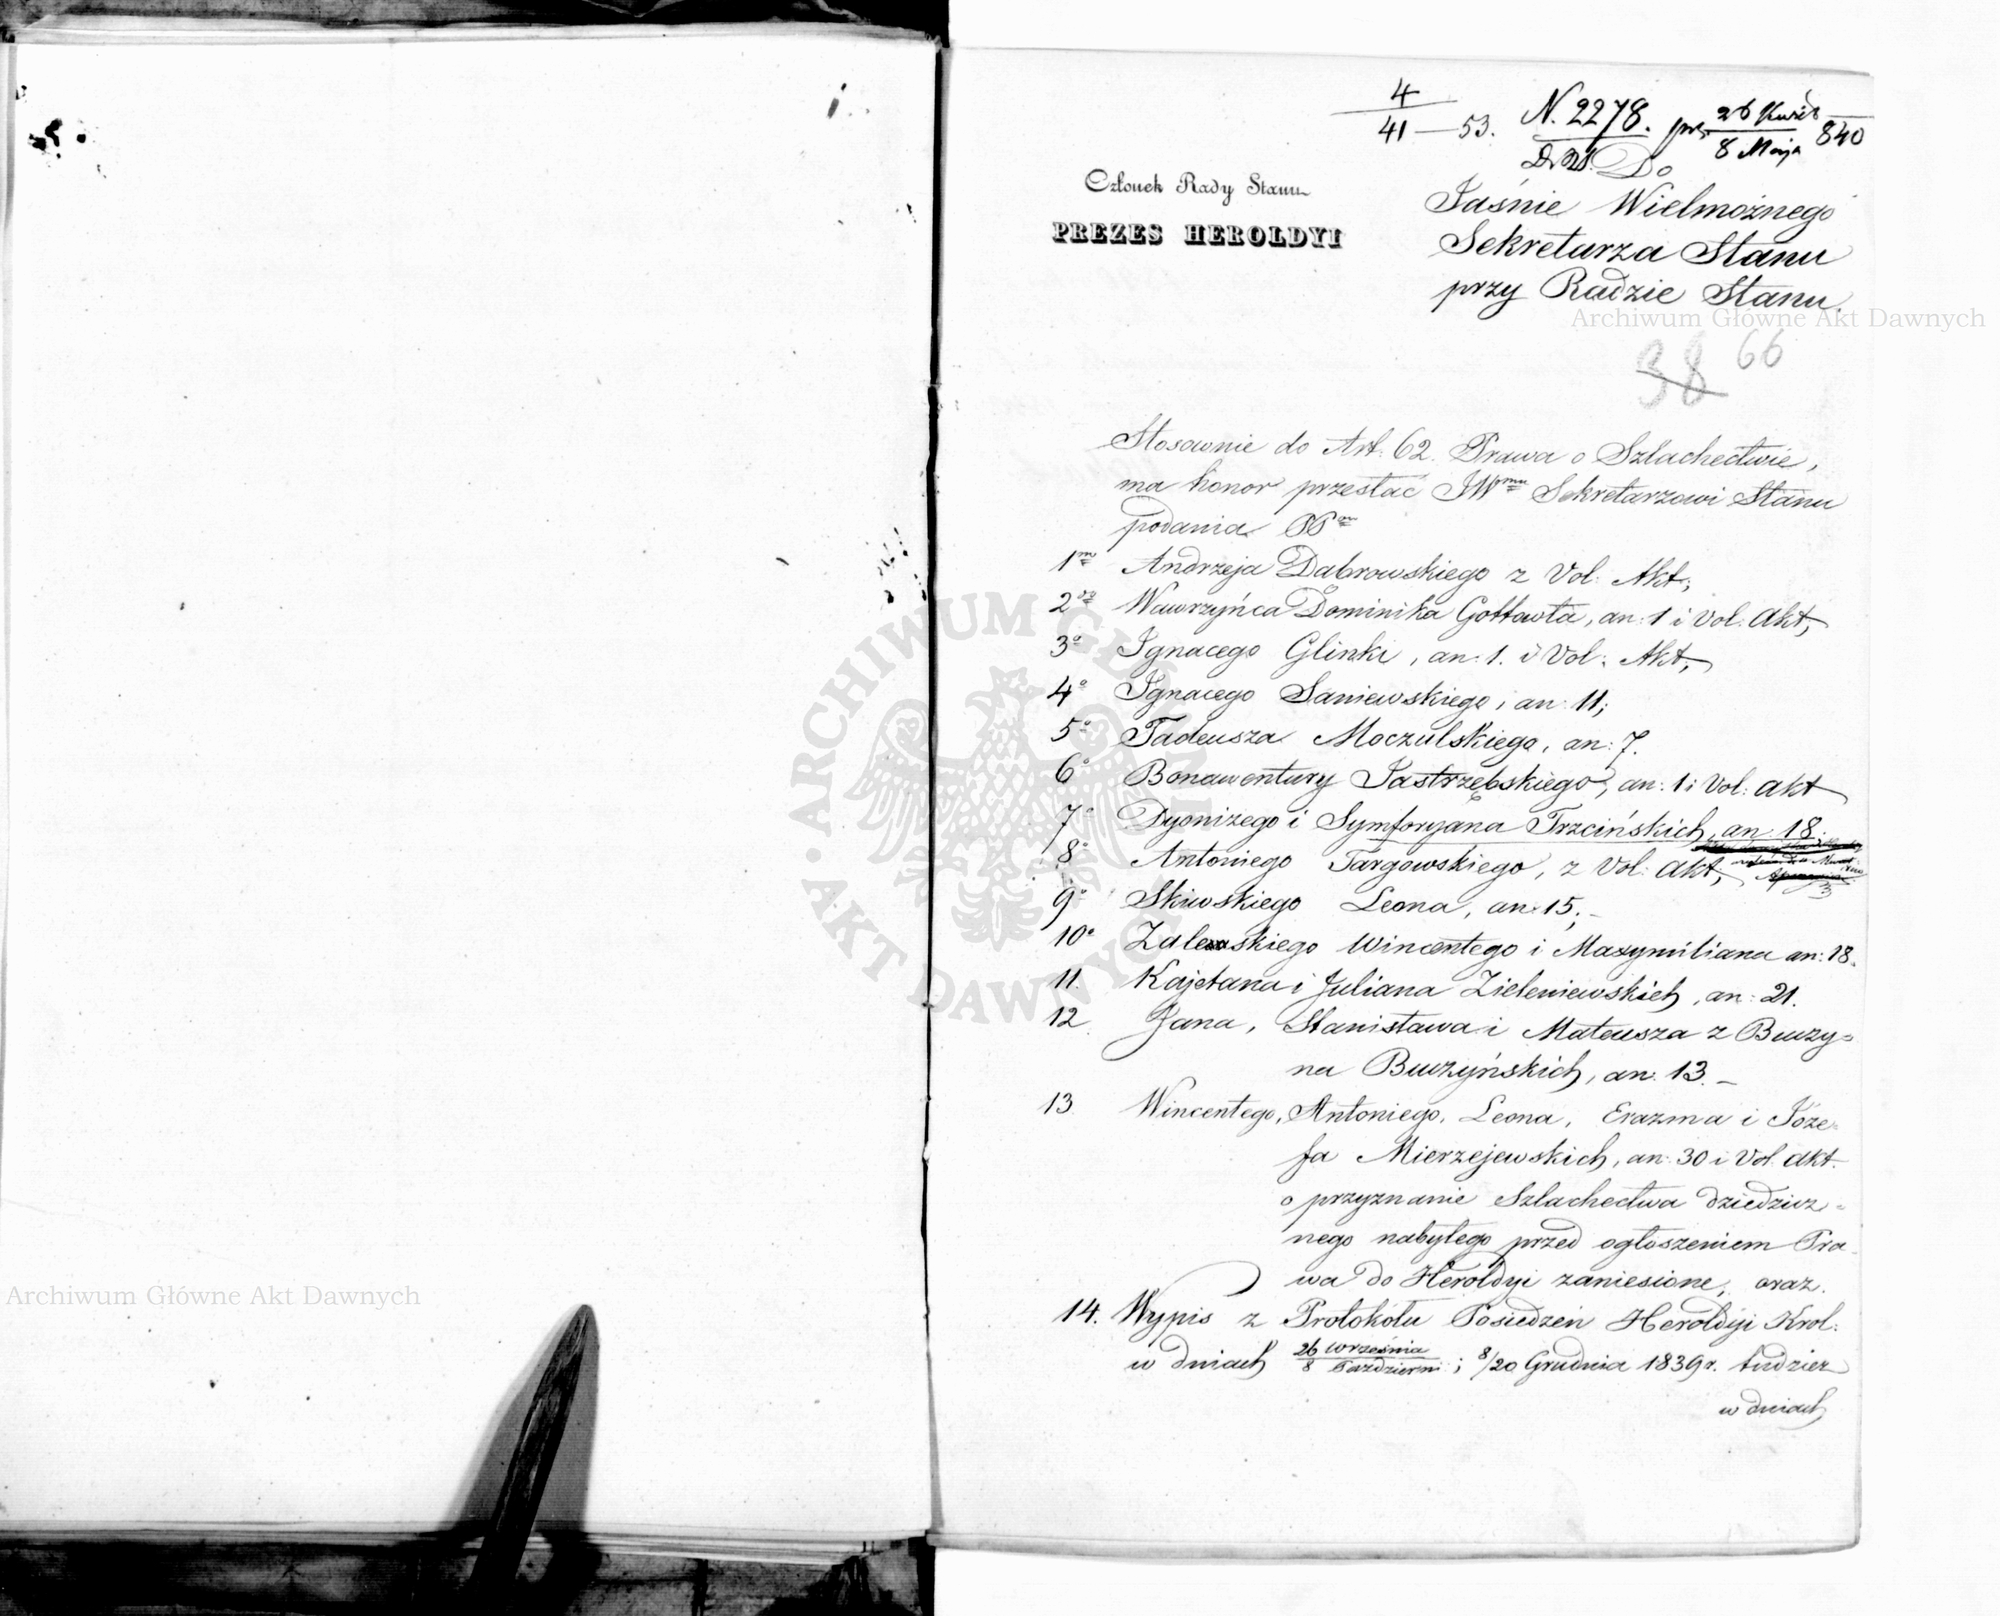 4
41 — 53.
N. 2278.
prs 26 Kwiet
8 Maja 840
Do
Członek Rady Stanu
PREZES HEROLDYI
Jaśnie Wielmożnego
Sekretarza Stanu
przy Radzie Stanu.
Archiwum Główne Akt Dawnych
38 66
Stosownie do Art. 62. Prawa o Szlachectwie,
ma honor przesłać JWmu Sekretarzowi Stanu
podania PP
1m Andrzeja Dabrowskiego z Vol: Akt;
2do Wawrzyńca Dominika Gottowta, an: 1 i Vol. Akt;
3o Ignacego Glinki, an: 1. i Vol: Akt;
4o Ignacego Janiewskiego, an: 11;
5o Tadeusza Moczulskiego, an: 7.
6o Bonawentury Jastrzębskiego, an: 1 i Vol: Akt
7o Dyonizego i Symforyana Trzcińskich, an 18.
8o Antoniego Targowskiego, z Vol: Akt,
9o Skiwskiego Leona, an: 15;
10o Zalewskiego Wincentego i Maxymiliana an: 18.
11. Kajetana i Juliana Zieleniewskich, an: 21.
12 Jana, Stanisława i Mateusza z Buczy=
na Buczyńskich, an: 13. —
13 Wincentego, Antoniego, Leona, Erazma i Joze=
fa Mierzejewskich, an: 30 i Vol. Akt.
o przyznanie Szlachectwa dziedzicz=
nego nabytego przed ogłoszeniem Pra=
wa do Heroldyi zaniesione, oraz.
14. Wypis z Protokółu Posiedzeń Heroldyi Krol:
w dniach 26 Września / 8 Październi: i 8/20 Grudnia 1839 r. tudzież
w dniach
ARCHIWUM GŁÓWNE · AKT DAWNYCH ·
Archiwum Główne Akt Dawnych